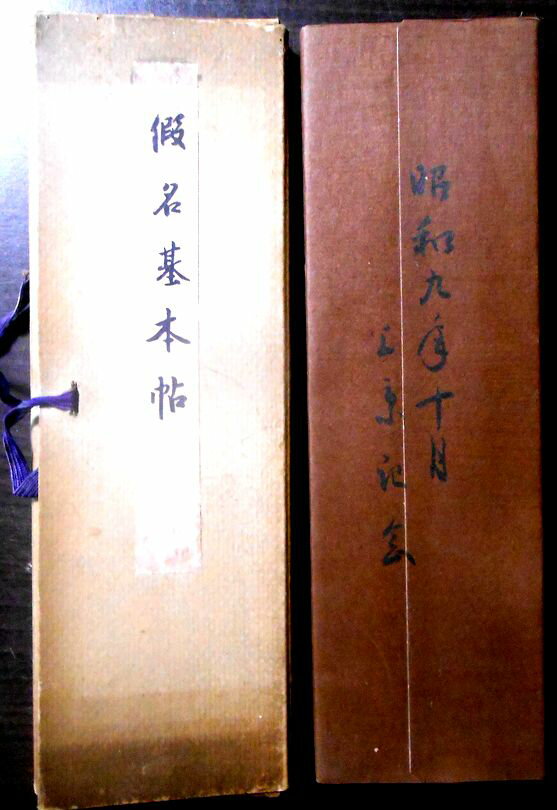 假名基本帖
昭和九年十月
上京記念